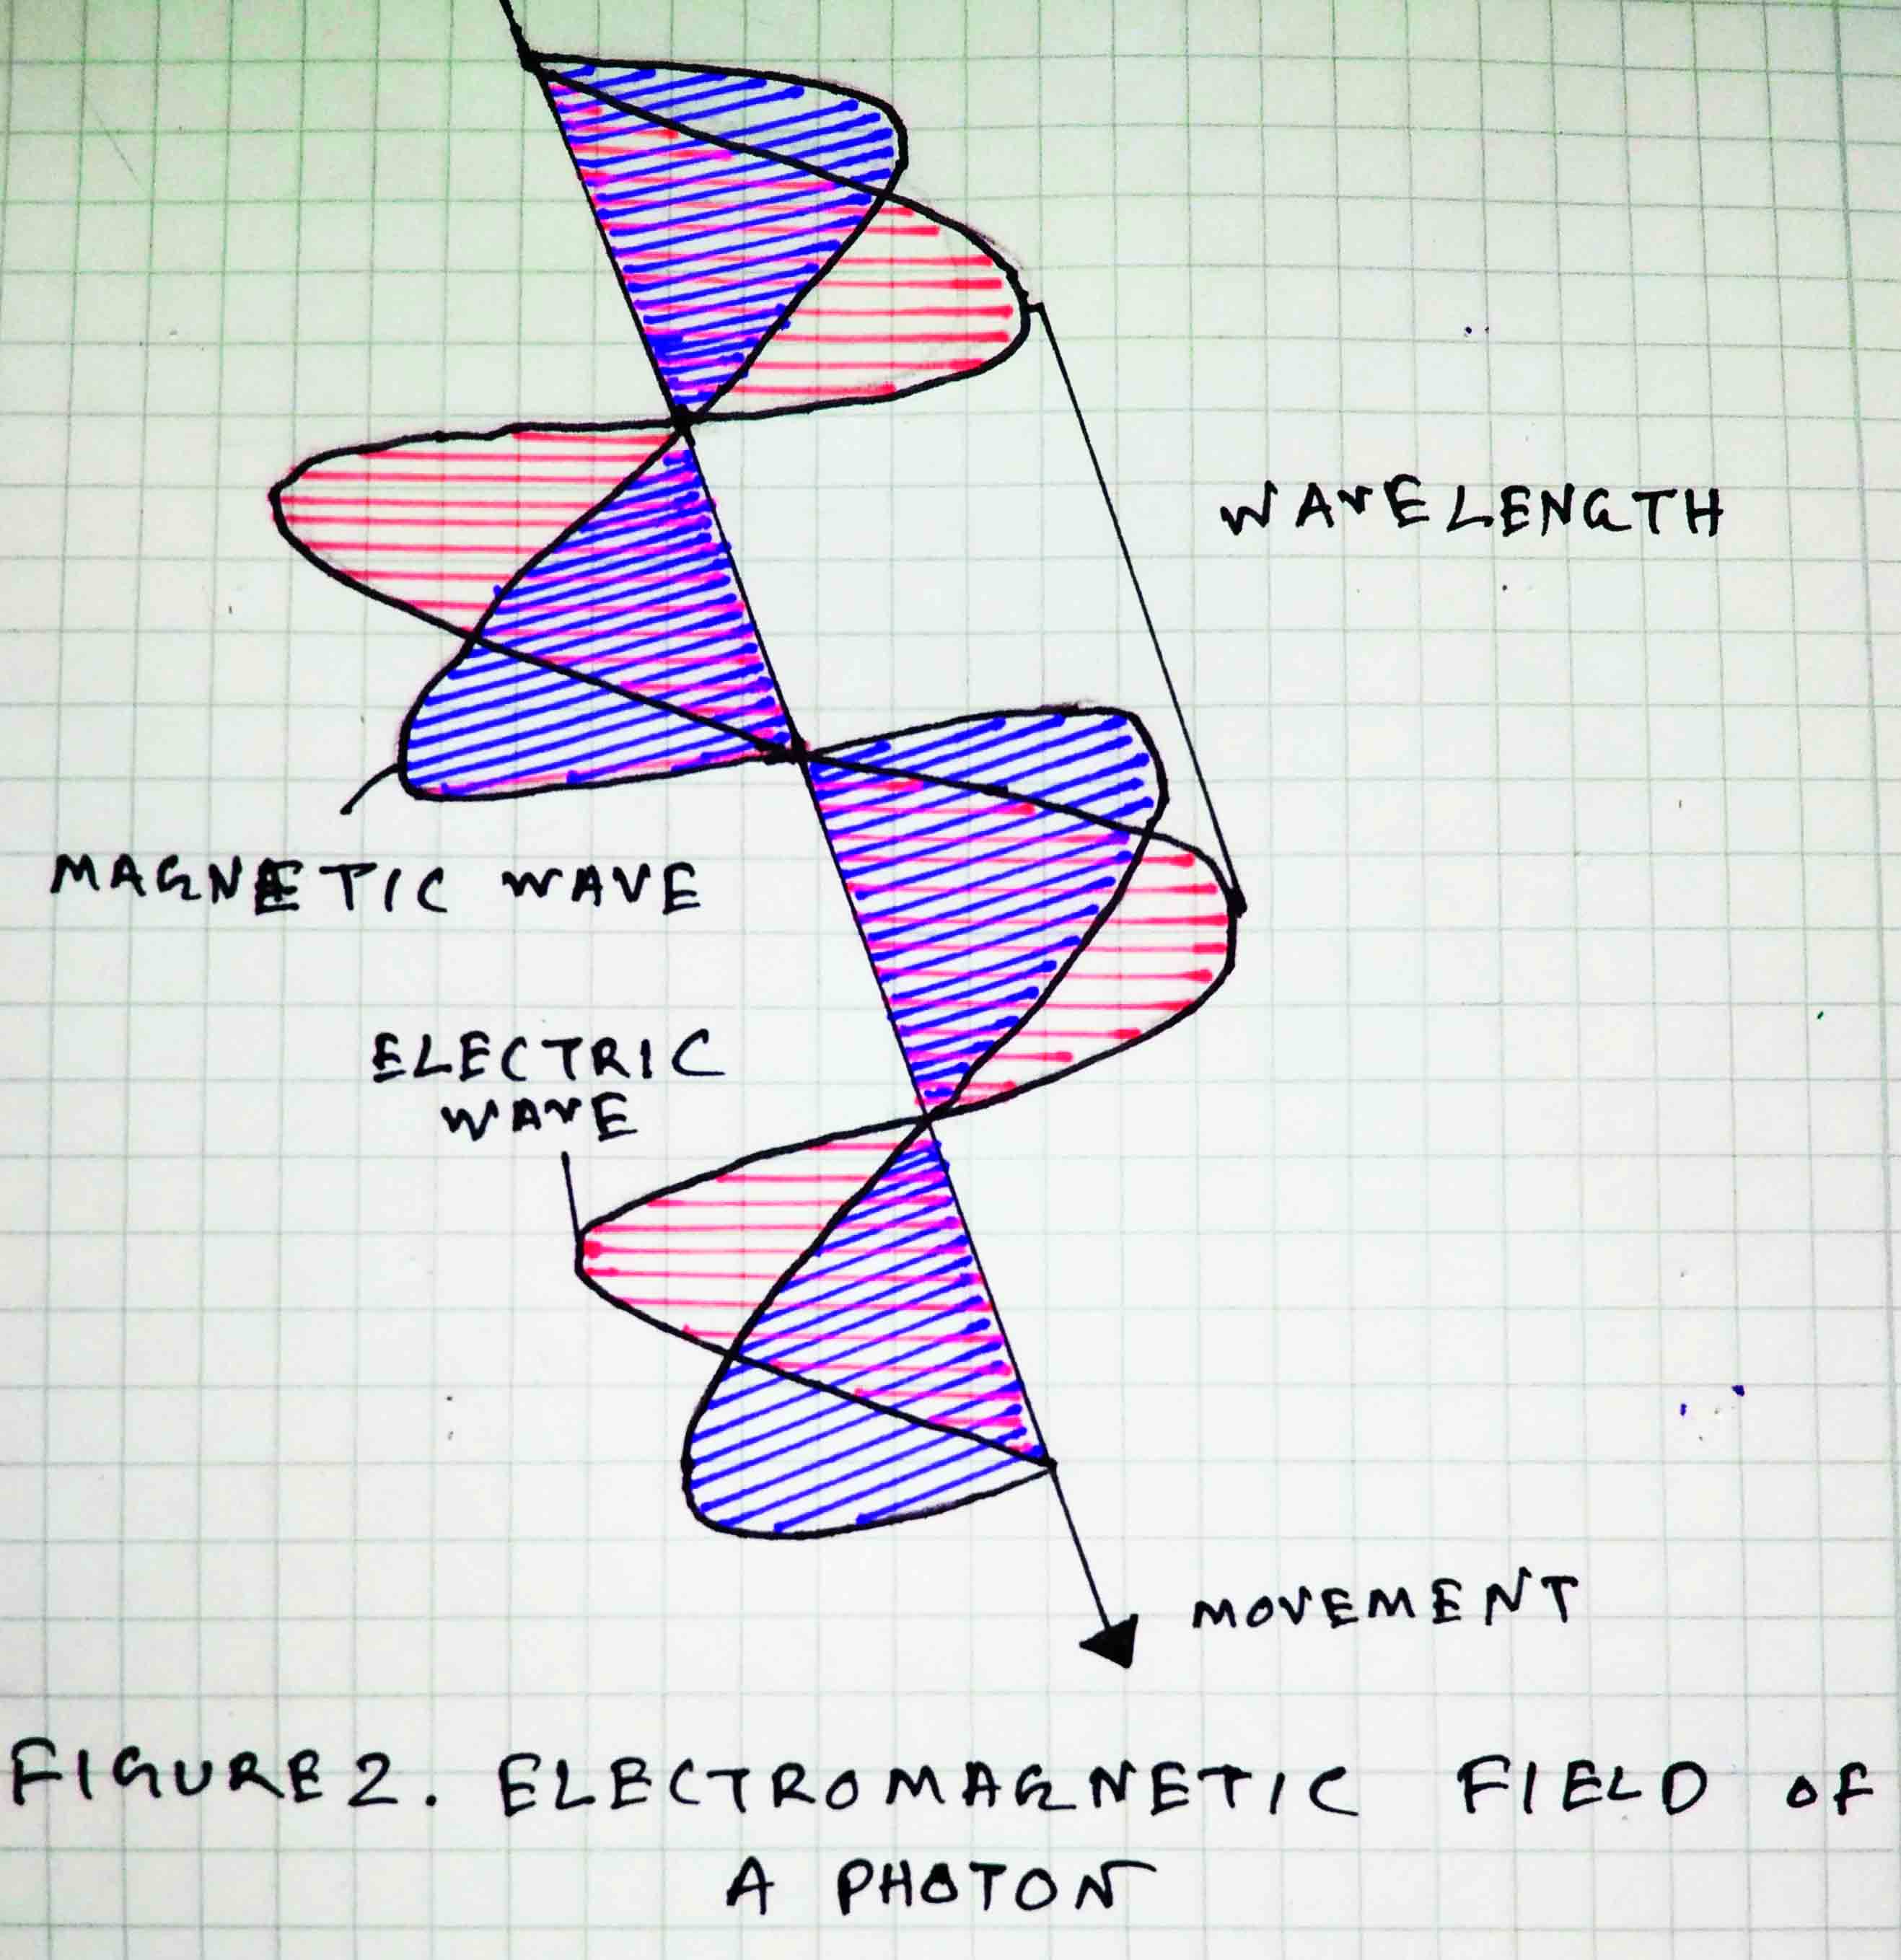 WAVELENGTH
MAGNETIC WAVE
ELECTRIC
WAVE
MOVEMENT
FIGURE 2. ELECTROMAGNETIC FIELD OF
A PHOTON